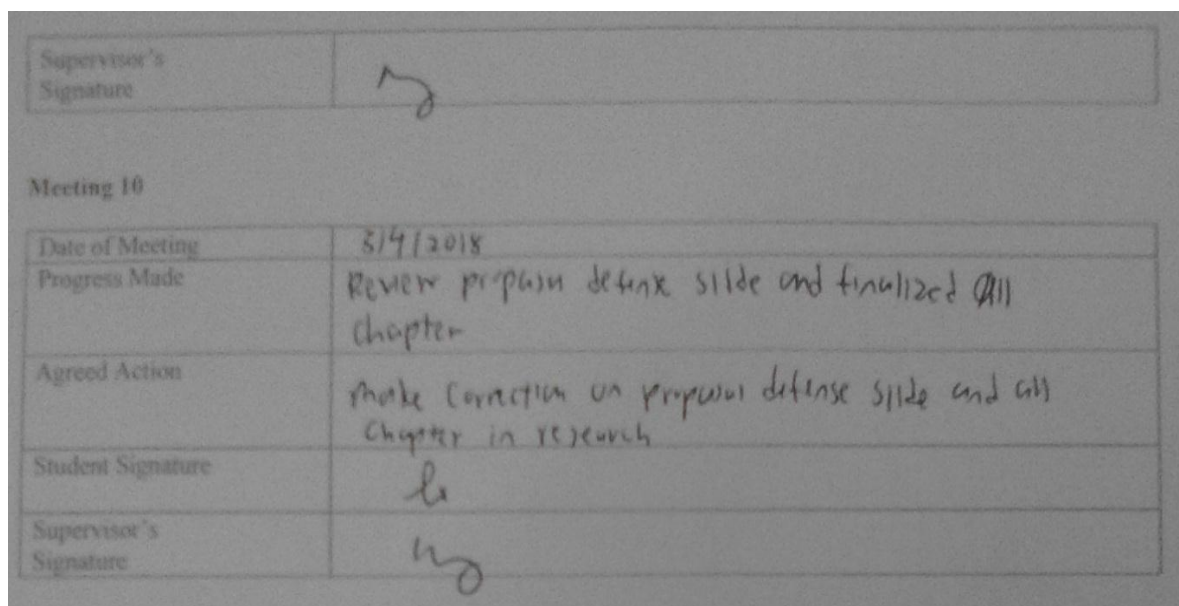 Supervisor's
Signature
Meeting 10
Date of Meeting
/4/2018
Progress Made
Review proposal defense slide and finalized all
chapter
Agreed Action
make correction on proposal defense slide and all
chapter in research
Student Signature
Supervisor's
Signature